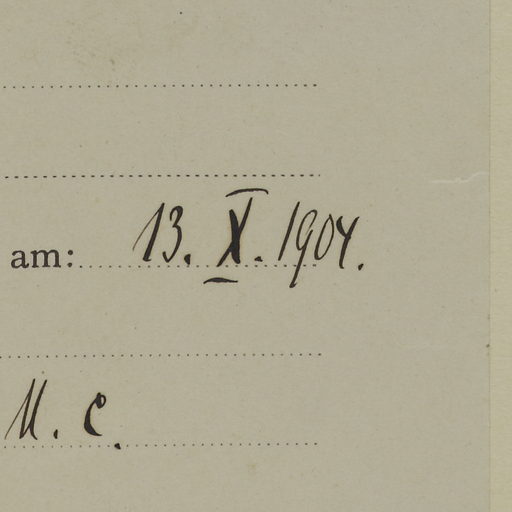 am: 13. X. 1904.
M. C.